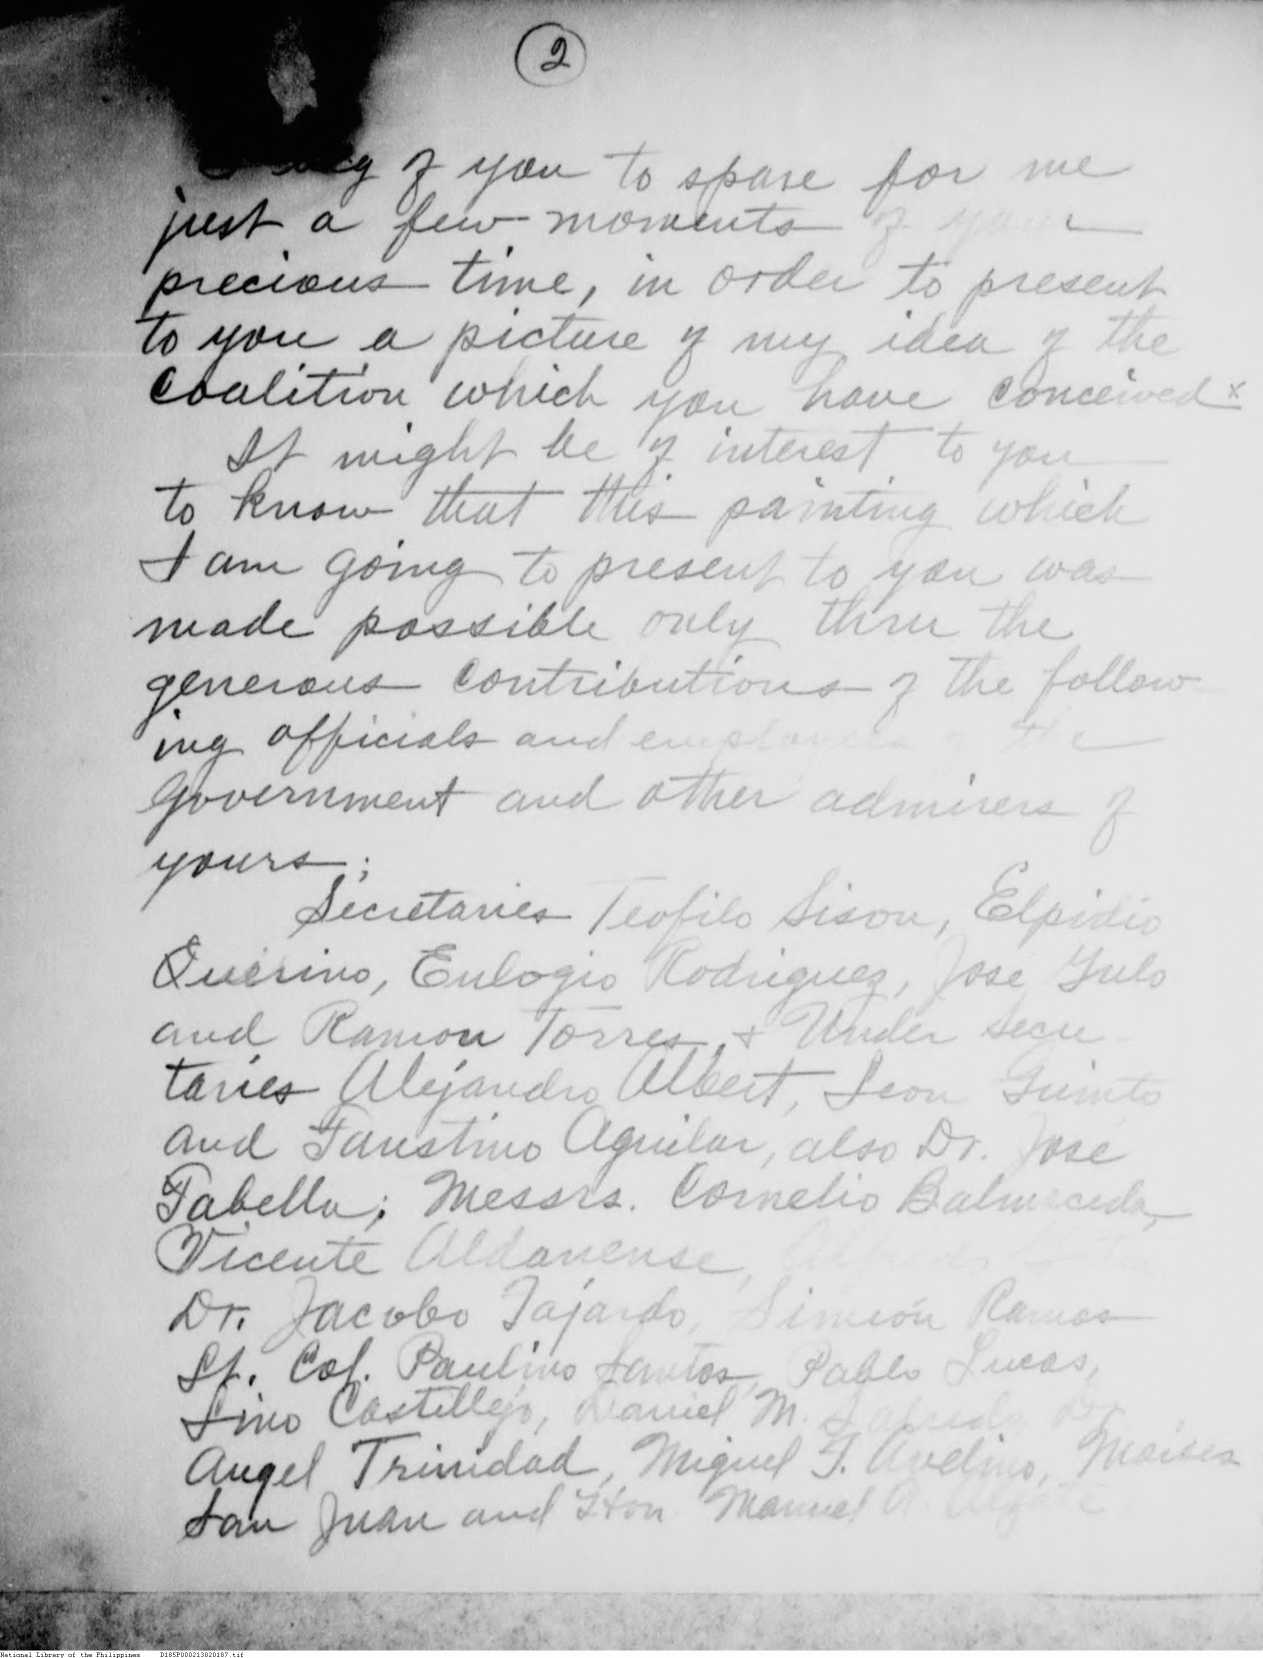 2
of you to spare for me
just a few moments of your
precious time, in order to present
to you a picture of my idea of the
Coalition which you have conceived x
It might be of interest to you
to know that this painting which
I am going to present to you was
made possible only thru the
generous contributions of the follow-
ing officials and employees of the
Government and other admirers of
yours;
Secretaries Teofilo Sison, Elpidio
Quirino, Eulogio Rodriguez, Jose Yulo
and Ramon Torres, & Under Secre-
taries Alejandro Albert, Leon Guinto
and Faustino Aguilar, also Dr. José
Fabella; Messrs. Cornelio Balmaceda,
Vicente Aldanense,
Dr. Jacobo Fajardo, Simeón Ramos
Lt. Col. Paulino Santos, Pablo Lucas,
Lino Castillejo, Daniel M. Dr.
Angel Trinidad, Miguel F. Avelino, Moises
San Juan and Hon. Manuel A.
National Library of the Philippines D185P000213020187.tif